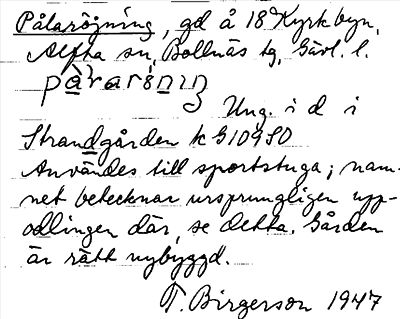 Pålaröjning, gd å 18² Kyrkbyn,
Alfta sn, Bollnäs tg, Gävl. l.
pàrarö́niŋ
Ung. i d i
Strandgården k G10950
Användes till sportstuga; nam-
net betecknar ursprungligen upp-
odlingen där, se detta. Gården
är rätt nybyggd.
T. Birgerson 1947